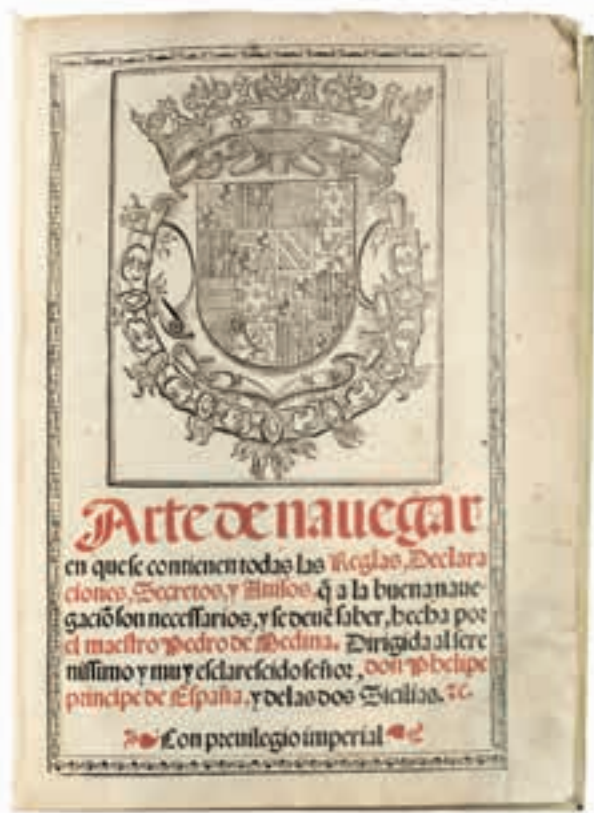 Arte de nauegar
en que se contienen todas las Reglas, Declara
ciones, Secretos, y Auisos, q̃ a la buena naue-
gaciõ son necessarios, y se deuẽ saber, hecha por
el maestro Pedro de Medina. Dirigida al sere
nissimo y muy esclarescido señor, don Phelipe
principe de España, y delas dos Sicilias. ⁊c.
Con preuilegio imperial